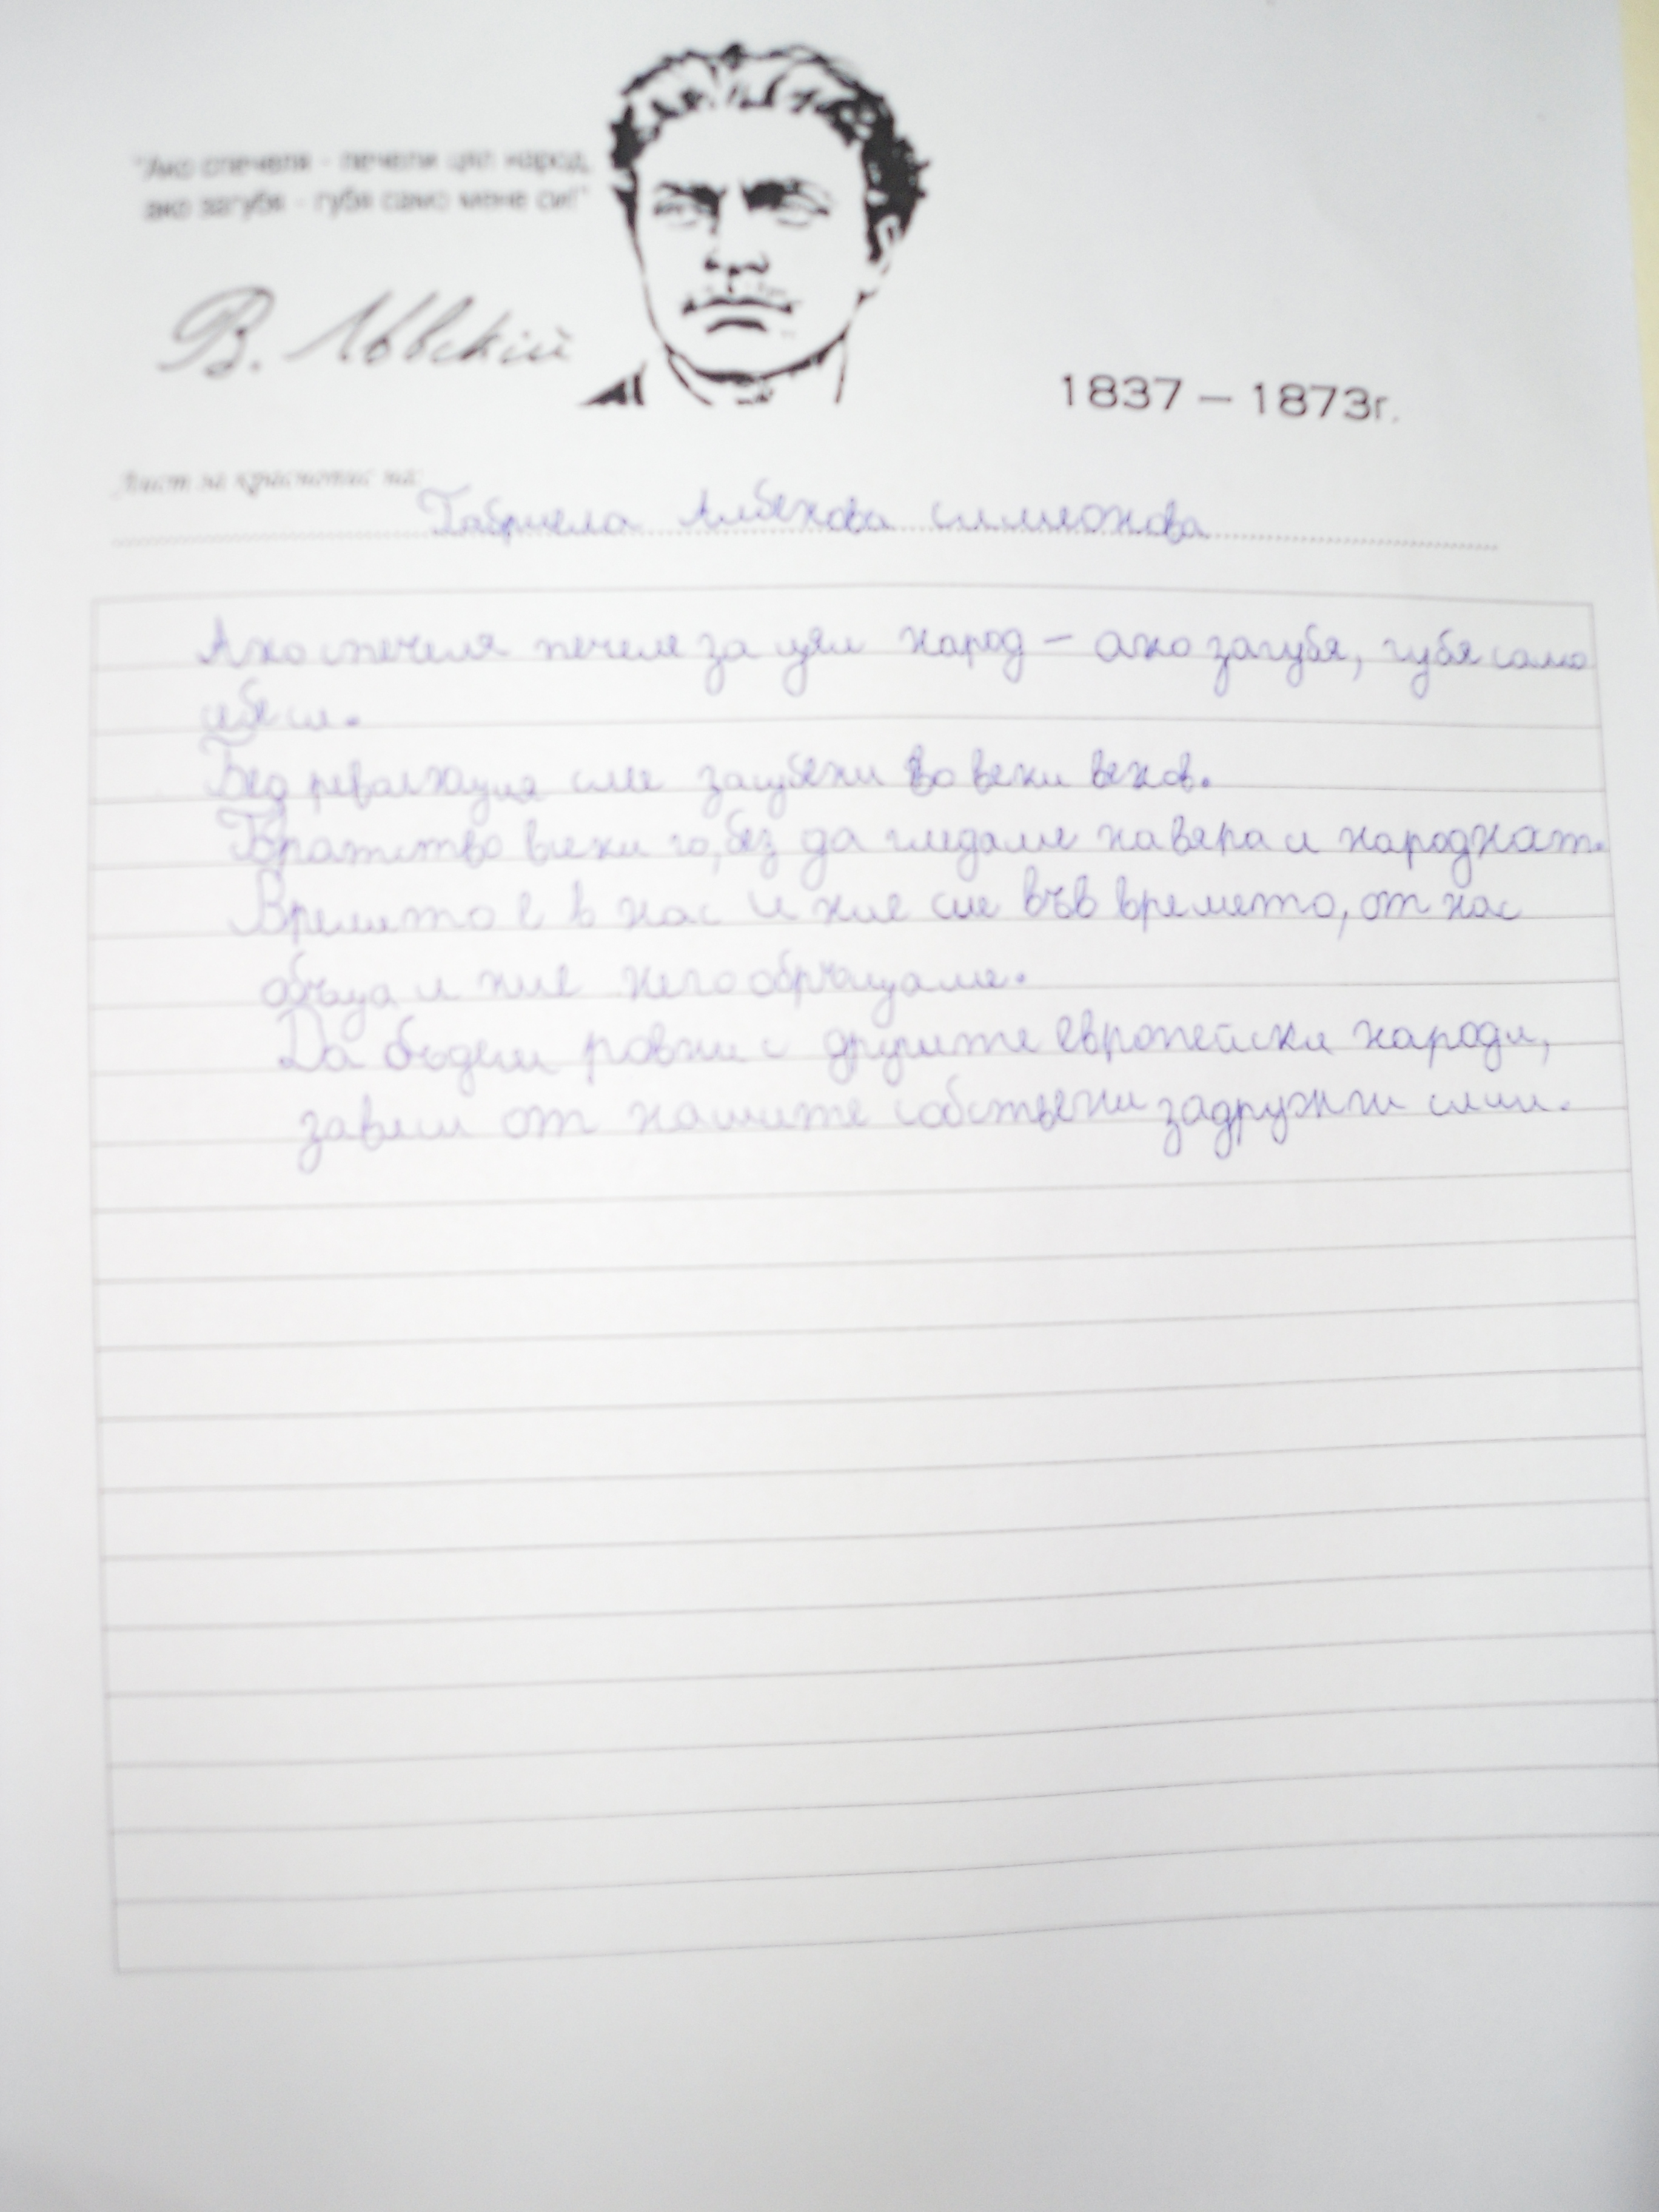 "Ако спечеля - печели цял народ,
ако загубя - губя само мене си!"
В. Лѵвскій
1837 – 1873г.
Лист за краснопис на:
Габриела Албенова Симеонова
Ако спечеля печеля за цял народ – ако загубя, губя само
себе си.
Без революция сме загубени во веки веков.
Братство всеки го, без да гледаме на вяра и народност.
Времето е в нас и ние сме във времето, от нас
обръща и ние него обръщаме.
Да бъдем ровни с другите европейски народи,
зависи от нашите собствени задружни сили.